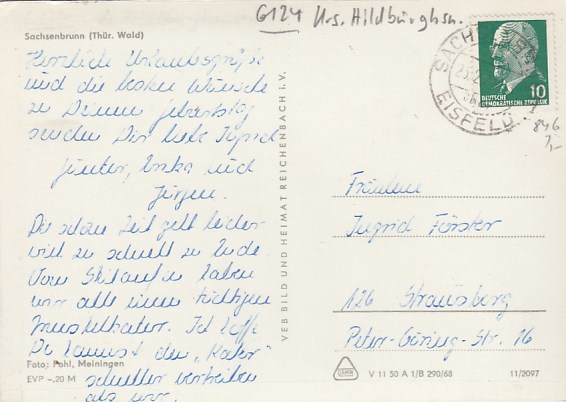 G124 Krs. Hildburghsn.
Sachsenbrunn (Thür. Wald)
Herzliche Urlaubsgrüße
und die besten Wünsche
zu Deinem Geburtstag
senden Dir liebe Ingrid
Günter, Erika und
Jürgen.
Die schöne Zeit geht leider
viel zu schnell zu Ende.
Vom Skilaufen haben
wir alle einen richtigen
Muskelkater. Ich hoffe
Du kannst den "Kater"
schneller vertreiben
als wir.
Foto: Pohl, Meiningen
EVP -,20 M
VEB BILD UND HEIMAT REICHENBACH i. V.
EISFELD
DEUTSCHE
DEMOKRATISCHE REPUBLIK
10
846
7,-
Fräulein
Ingrid Förster
126 Strausberg
Peter-Göring-Str. 16
V 11 50 A 1/B 290/68
11/2097